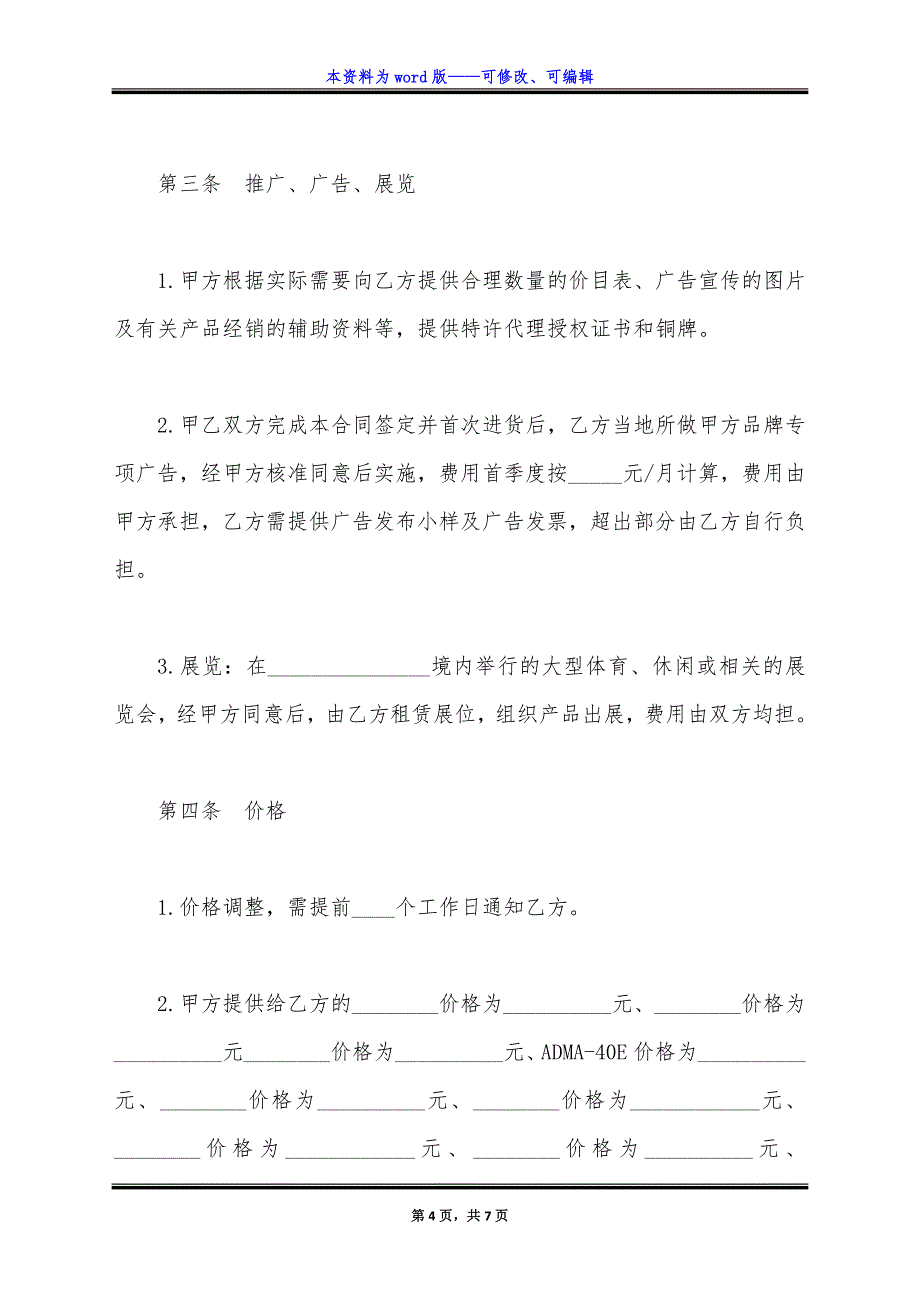 本资料为 word 版——可修改、可编辑
第三条　推广、广告、展览
1.甲方根据实际需要向乙方提供合理数量的价目表、广告宣传的图片
及有关产品经销的辅助资料等，提供特许代理授权证书和铜牌。
2.甲乙双方完成本合同签定并首次进货后，乙方当地所做甲方品牌专
项广告，经甲方核准同意后实施，费用首季度按_____元/月计算，费用由
甲方承担，乙方需提供广告发布小样及广告发票，超出部分由乙方自行负
担。
3.展览：在_______________境内举行的大型体育、休闲或相关的展
览会，经甲方同意后，由乙方租赁展位，组织产品出展，费用由双方均担。
第四条　价格
1.价格调整，需提前____个工作日通知乙方。
2.甲方提供给乙方的________价格为__________元、________价格为
__________元________价格为__________元、ADMA-40E 价格为__________
元、________价格为__________元、________价格为____________元、
________价格为____________元、________价格为__________元、
第 4 页，共 7 页